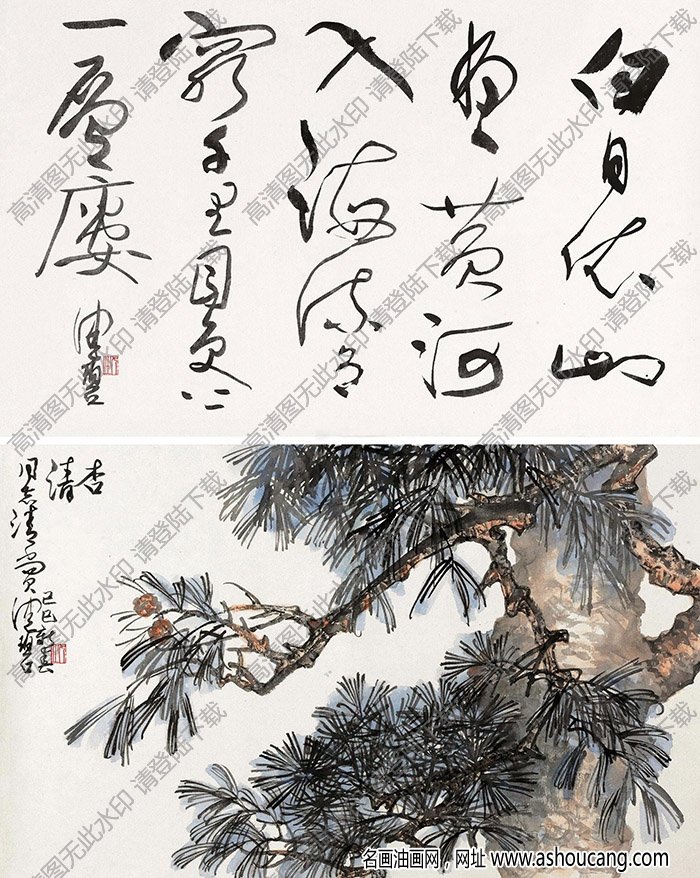 白日依山
盡黄河
入海流欲
窮千里目更上
一層樓
杏清
同志清賞
己巳新春
高清图无此水印 请登陆下载
名画油画网，网址 www.ashoucang.com